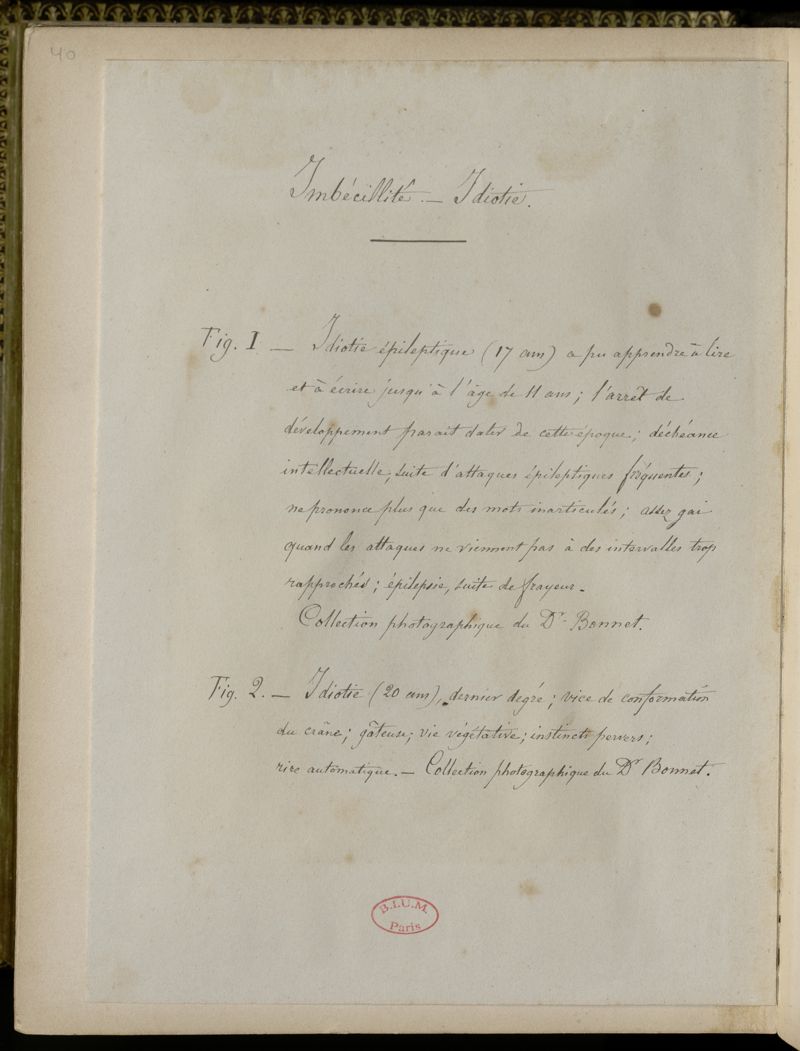 40
Imbécillité. — Idiotie.
Fig. I — Idiotie épileptique (17 ans) a pu apprendre à lire
et à écrire jusqu'à l'âge de 11 ans; l'arrêt de
développement parait dater de cette époque; déchéance
intellectuelle, suite d'attaques épileptiques fréquentes;
ne prononce plus que des mots inarticulés; assez gai
quand les attaques ne viennent pas à des intervalles trop
rapprochés; épilepsie, suite de frayeur.
Collection photographique du Dr. Bonnet.
Fig. 2. — Idiotie (20 ans), dernier degré; vice de conformation
du crâne; gâteuse; vie végétative; instincts pervers;
rire automatique. — Collection photographique du Dr Bonnet.
B.I.U.M.
Paris